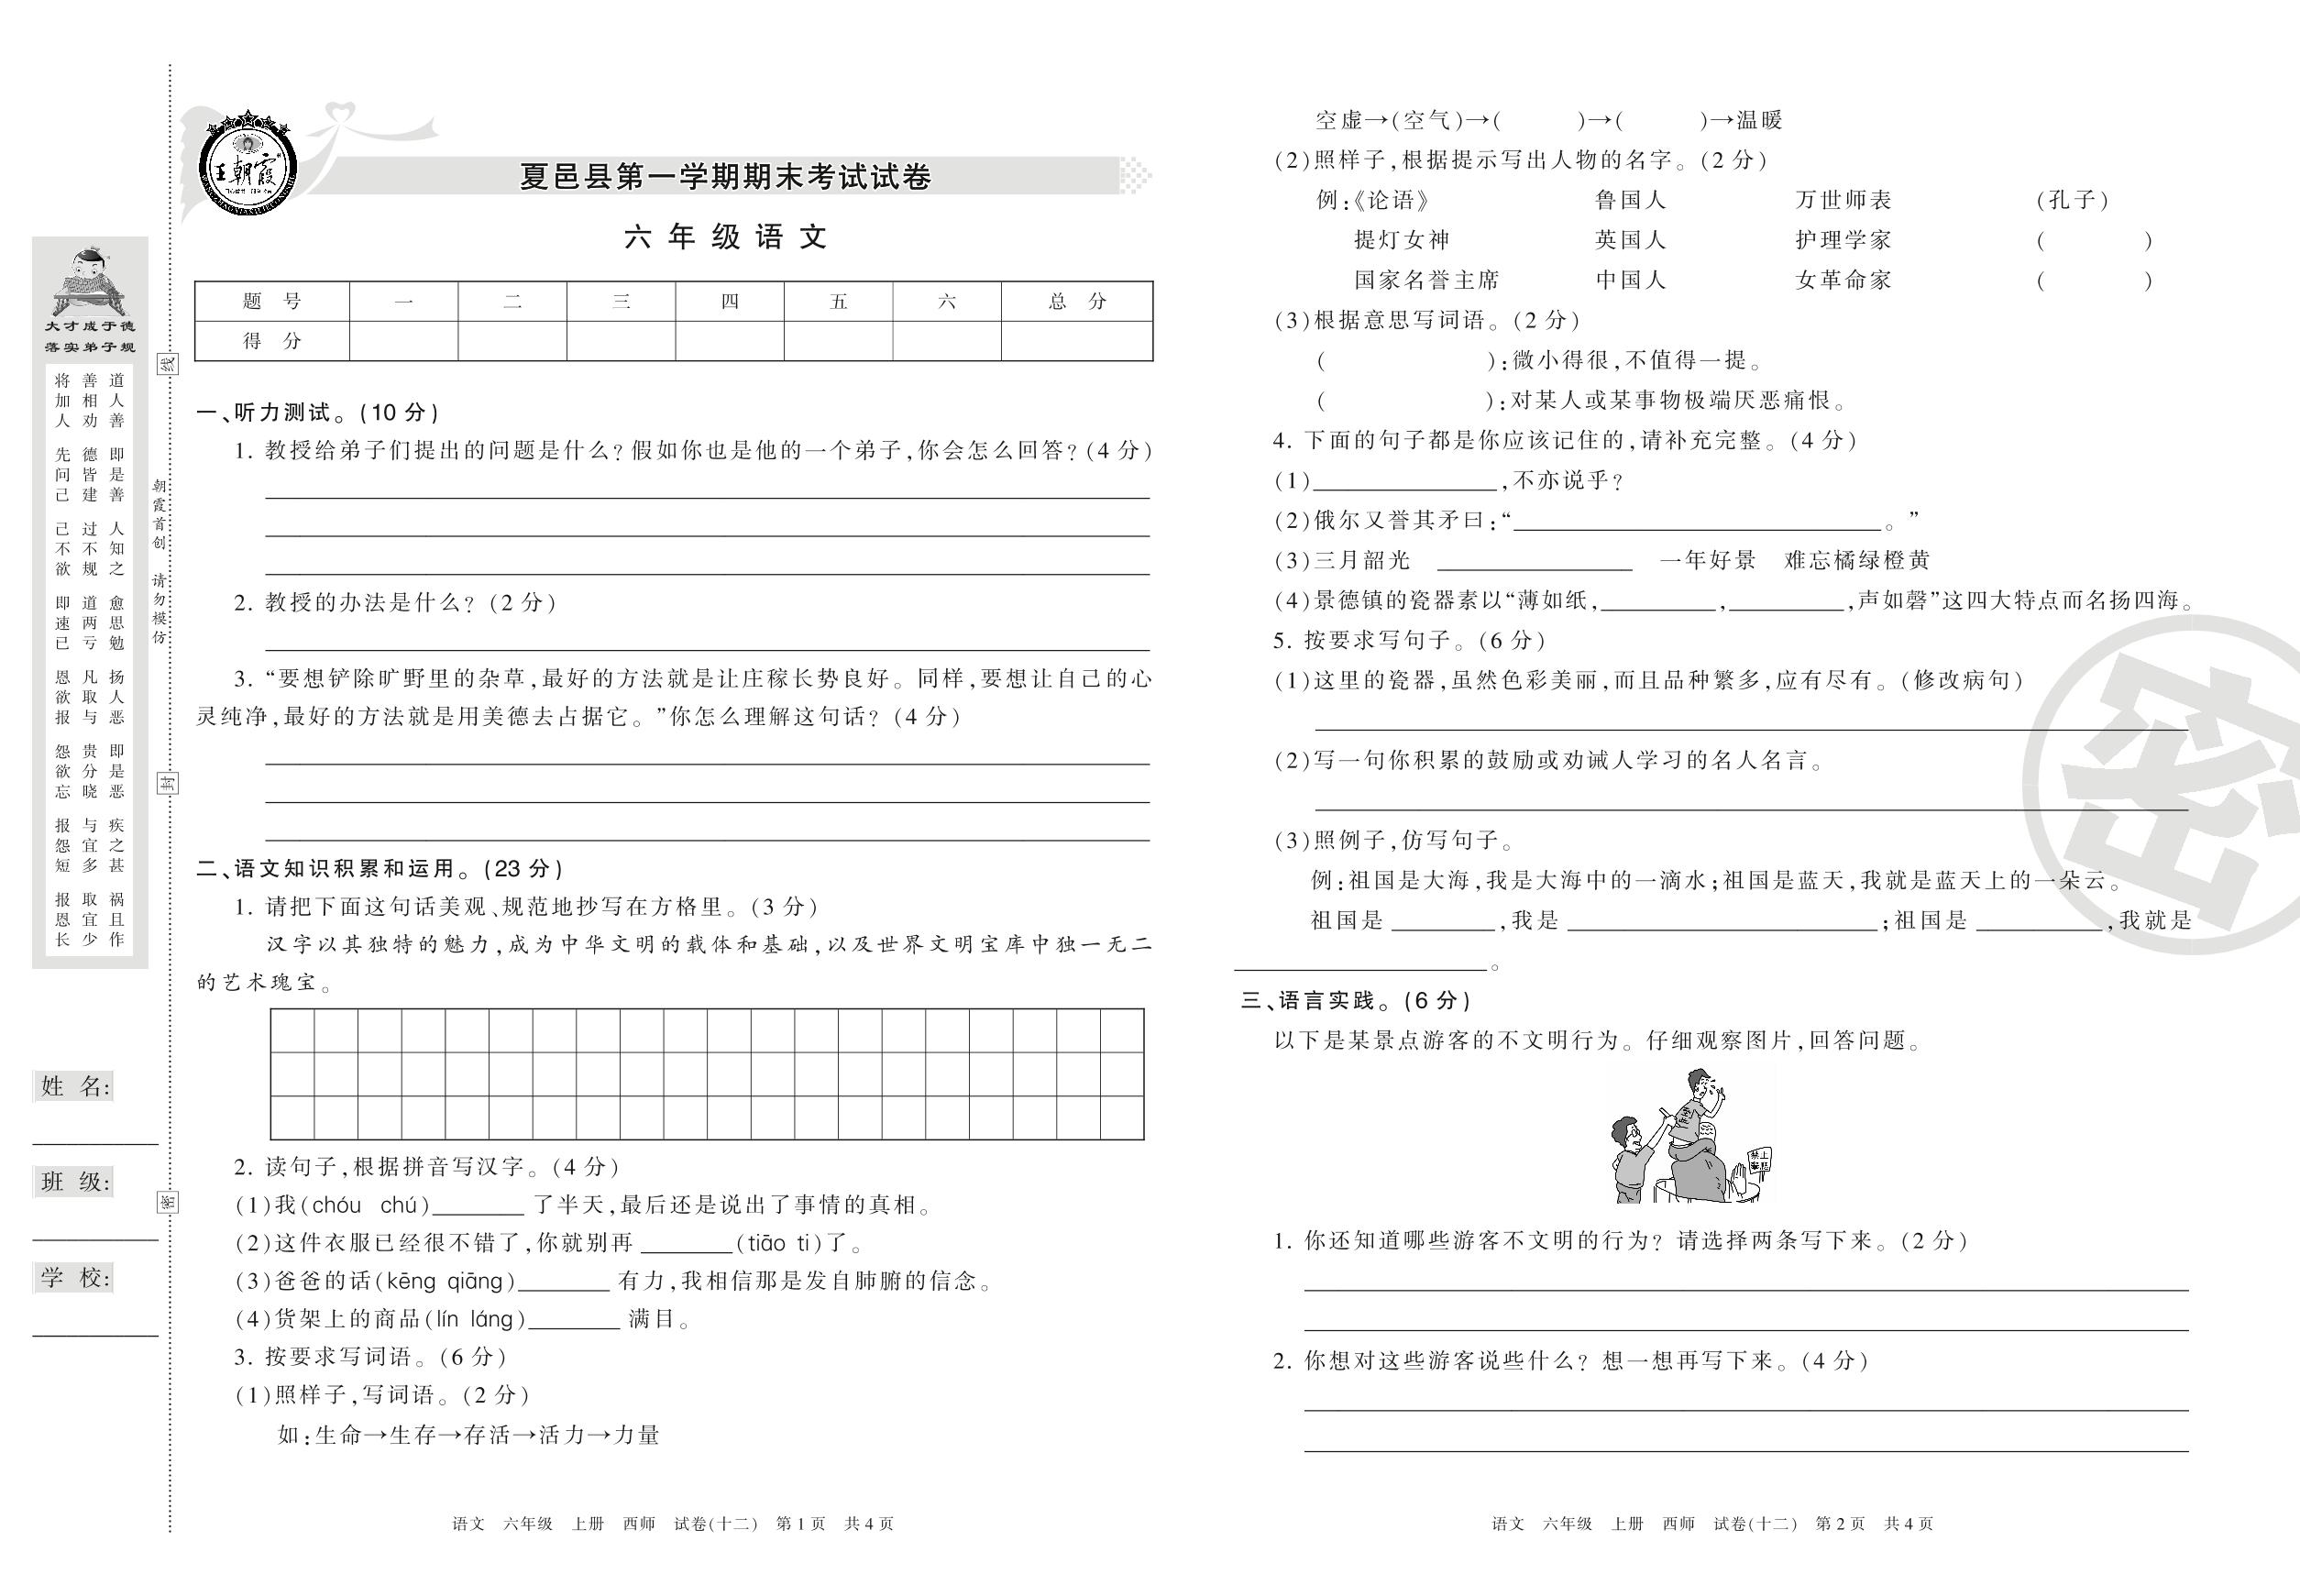 王朝霞
夏邑县第一学期期末考试试卷
六年级语文
题 号 一 二 三 四 五 六 总 分
得 分
一、听力测试。(10 分)
1. 教授给弟子们提出的问题是什么? 假如你也是他的一个弟子,你会怎么回答? (4 分)
2. 教授的办法是什么? (2 分)
3. “要想铲除旷野里的杂草,最好的方法就是让庄稼长势良好。同样,要想让自己的心
灵纯净,最好的方法就是用美德去占据它。”你怎么理解这句话? (4 分)
二、语文知识积累和运用。(23 分)
1. 请把下面这句话美观、规范地抄写在方格里。(3 分)
汉字以其独特的魅力,成为中华文明的载体和基础,以及世界文明宝库中独一无二
的艺术瑰宝。
2. 读句子,根据拼音写汉字。(4 分)
(1)我(chóu chú)________ 了半天,最后还是说出了事情的真相。
(2)这件衣服已经很不错了,你就别再 ________(tiāo ti)了。
(3)爸爸的话(kēng qiāng)________ 有力,我相信那是发自肺腑的信念。
(4)货架上的商品(lín láng)________ 满目。
3. 按要求写词语。(6 分)
(1)照样子,写词语。(2 分)
如:生命→生存→存活→活力→力量
语文 六年级 上册 西师 试卷(十二) 第 1 页 共 4 页
空虚→(空气)→( )→( )→温暖
(2)照样子,根据提示写出人物的名字。(2 分)
例:《论语》 鲁国人 万世师表 (孔子)
提灯女神 英国人 护理学家 ( )
国家名誉主席 中国人 女革命家 ( )
(3)根据意思写词语。(2 分)
( ):微小得很,不值得一提。
( ):对某人或某事物极端厌恶痛恨。
4. 下面的句子都是你应该记住的,请补充完整。(4 分)
(1)________________,不亦说乎?
(2)俄尔又誉其矛曰:“________________________________。”
(3)三月韶光 ________________ 一年好景 难忘橘绿橙黄
(4)景德镇的瓷器素以“薄如纸,__________,__________,声如磬”这四大特点而名扬四海。
5. 按要求写句子。(6 分)
(1)这里的瓷器,虽然色彩美丽,而且品种繁多,应有尽有。(修改病句)
(2)写一句你积累的鼓励或劝诫人学习的名人名言。
(3)照例子,仿写句子。
例:祖国是大海,我是大海中的一滴水;祖国是蓝天,我就是蓝天上的一朵云。
祖国是 _________,我是 ___________________________;祖国是 ___________,我就是
______________________。
三、语言实践。(6 分)
以下是某景点游客的不文明行为。仔细观察图片,回答问题。
禁止
攀爬
1. 你还知道哪些游客不文明的行为? 请选择两条写下来。(2 分)
2. 你想对这些游客说些什么? 想一想再写下来。(4 分)
语文 六年级 上册 西师 试卷(十二) 第 2 页 共 4 页
密
大才成于德
落实弟子规
道人善 即是善 人知之 愈思勉
扬人恶 即是恶 疾之甚 祸且作
善相劝 德皆建 过不规 道两亏
凡取与 贵分晓 与宜多 取宜少
将加人 先问己 己不欲 即速已
恩欲报 怨欲忘 报怨短 报恩长
朝霞首创 请勿模仿
线
封
密
姓 名:
班 级:
学 校: